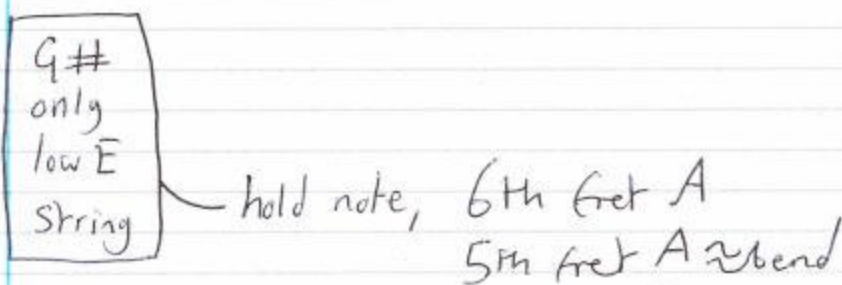 G#
only
low E
string
hold note, 6th fret A
5th fret A ≈bend